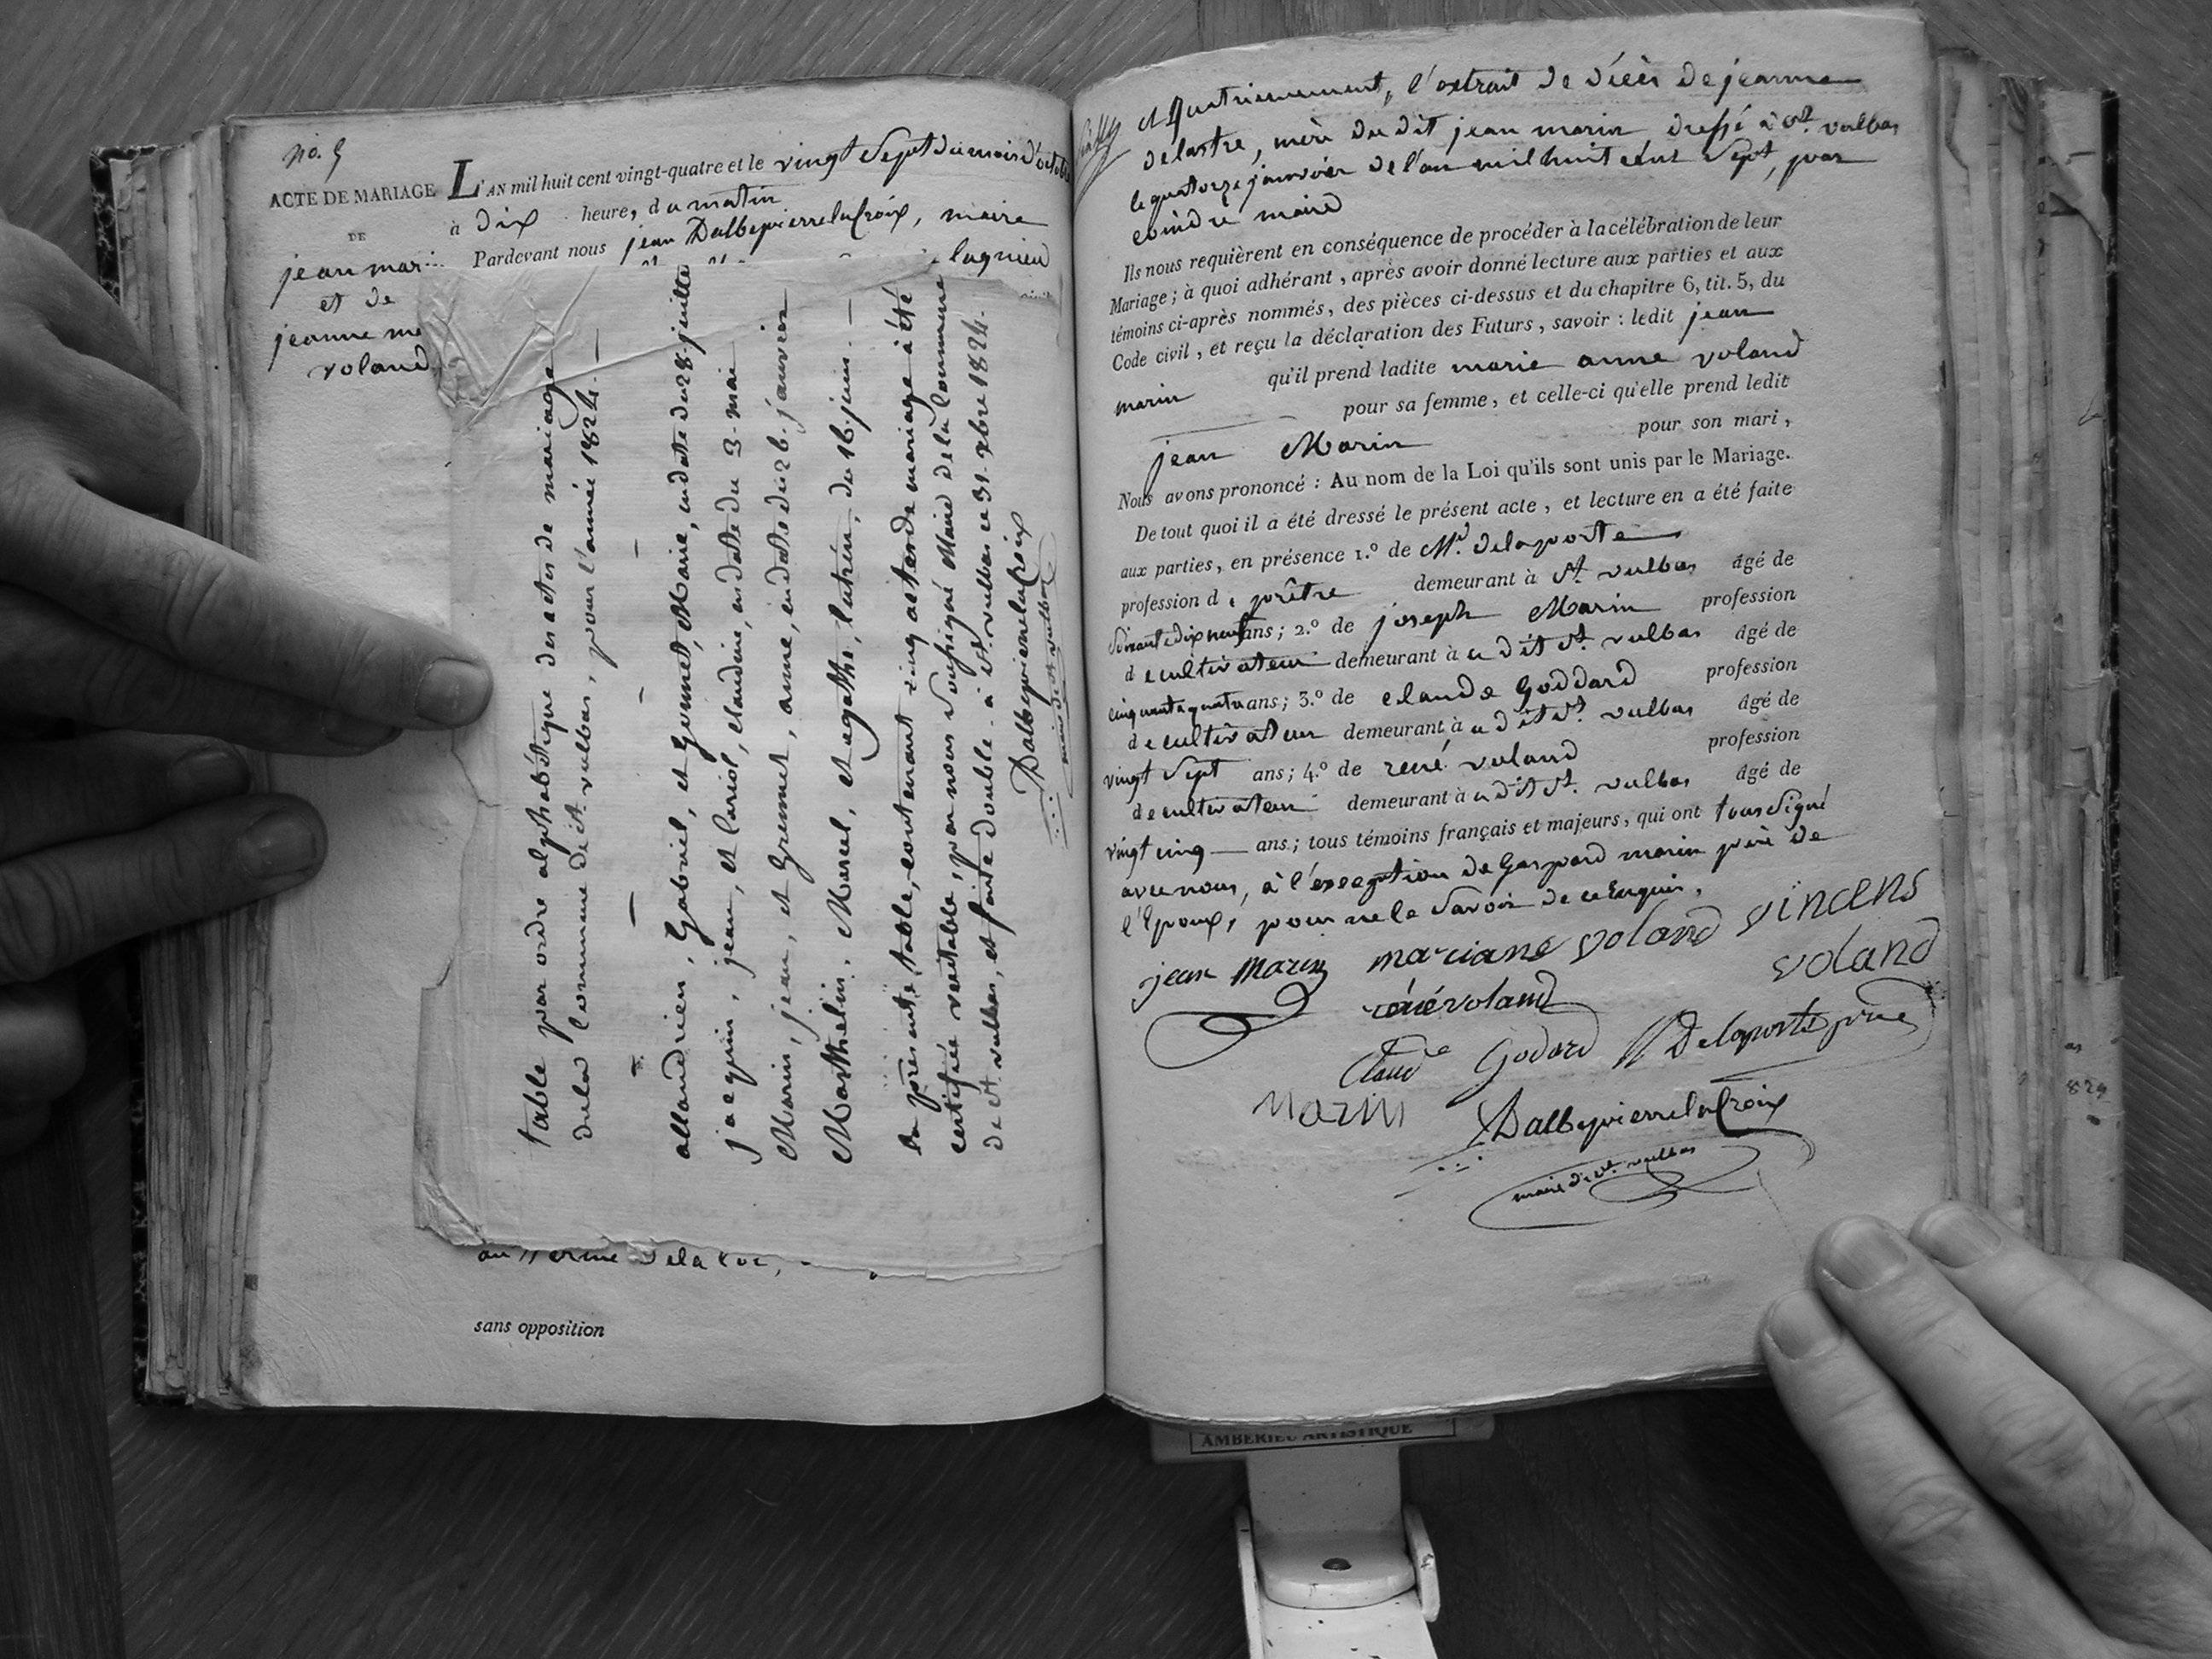 no. 5
ACTE DE MARIAGE
DE
jean mari
et de
jeanne
voland
L'AN mil huit cent vingt-quatre et le vingt sept du mois d'octobre
à dix heure, du matin
Pardevant nous jean DalbepierrelaCroix, maire
lagnieu
table par ordre alphabétique des actes de mariage
dela Commune de st. vulbas, pour l'année 1824.
allandrieu, Gabriel, et Gonnet, Marie, en date du 28. juillet
jacquin, jean, et Cariol, claudine, en date du 3. mai
Marin, jean, et Gremmet, anne, en date du 26. janvier
Marthelin, Marcel, et agathe, du 16. juin.
la présente table, contenant cinq actes de mariage à été
certifiée veritable, par nous soussigné Maire de la Commune
de st vulbas, et faite double à st. vulbas ce 31. xbre 1824.
DalbepierrelaCroix
maire de st vulbas
au terme dela loi,
sans opposition
et Quatriemement, l'extrait de décès de jeanne
delastre, mère du dit jean marin dressé à st. vulbas
le quatorze janvier de l'an mil huit cent sept, par
coindre maire
Ils nous requièrent en conséquence de procéder à la célébration de leur
Mariage; à quoi adhérant, après avoir donné lecture aux parties et aux
témoins ci-après nommés, des pièces ci-dessus et du chapitre 6, tit. 5, du
Code civil, et reçu la déclaration des Futurs, savoir : ledit jean
marin qu'il prend ladite marie anne voland
pour sa femme, et celle-ci qu'elle prend ledit
jean Marin pour son mari,
Nous avons prononcé : Au nom de la Loi qu'ils sont unis par le Mariage.
De tout quoi il a été dressé le présent acte, et lecture en a été faite
aux parties, en présence 1.º de Mr. delaporte
profession d e prêtre demeurant à st. vulbas âgé de
soixante dix neuf ans; 2.º de joseph Marin profession
d e cultivateur demeurant à u dit st. vulbas âgé de
cinquante quatre ans; 3.º de claude Goddard profession
d e cultivateur demeurant à u dit st. vulbas âgé de
vingt sept ans; 4.º de rené voland profession
d e cultivateur demeurant à u dit st. vulbas âgé de
vingt cinq ans; tous témoins français et majeurs, qui ont tous signé
avec nous, à l'exception de Gaspard marin père de
l'Epoux, pour ne le savoir de ce Enquis.
jean Marin marciane voland vincens
voland
réné voland
Claude Godard Delaporte prêtre
Marin DalbepierrelaCroix
maire de st. vulbas
824
AMBERIEU ARTISTIQUE